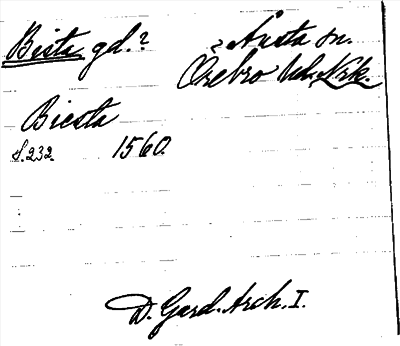 Bista gd.?
? Ånsta sn.
Örebro hd. Nrk.
Biesta
s. 232. 1560.
D. Gard. Arch. I.